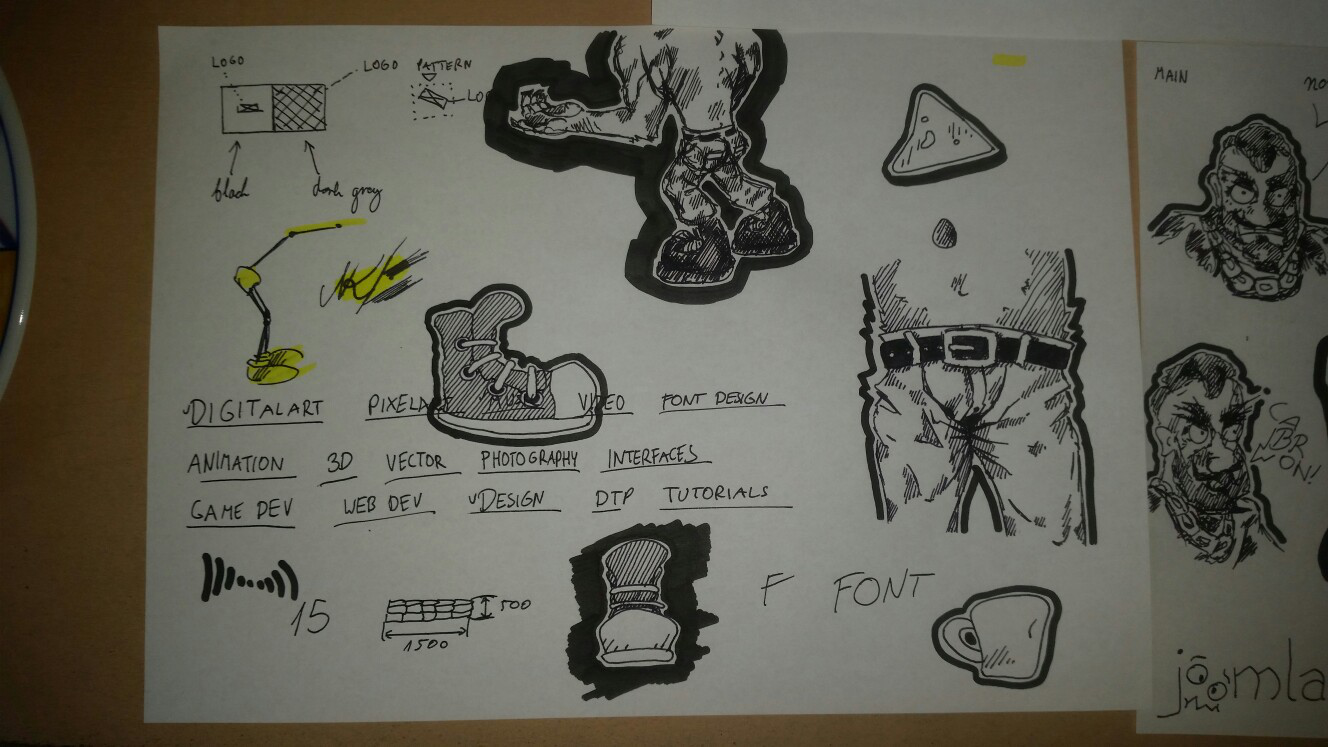 LOGO
LOGO PATTERN
LO
black
dark gray
DIGITALART PIXELA VIDEO FONT DESIGN
ANIMATION 3D VECTOR PHOTOGRAPHY INTERFACES
GAME DEV WEB DEV DESIGN DTP TUTORIALS
15
500
1500
F FONT
MAIN
no
BR
ON!
joomla